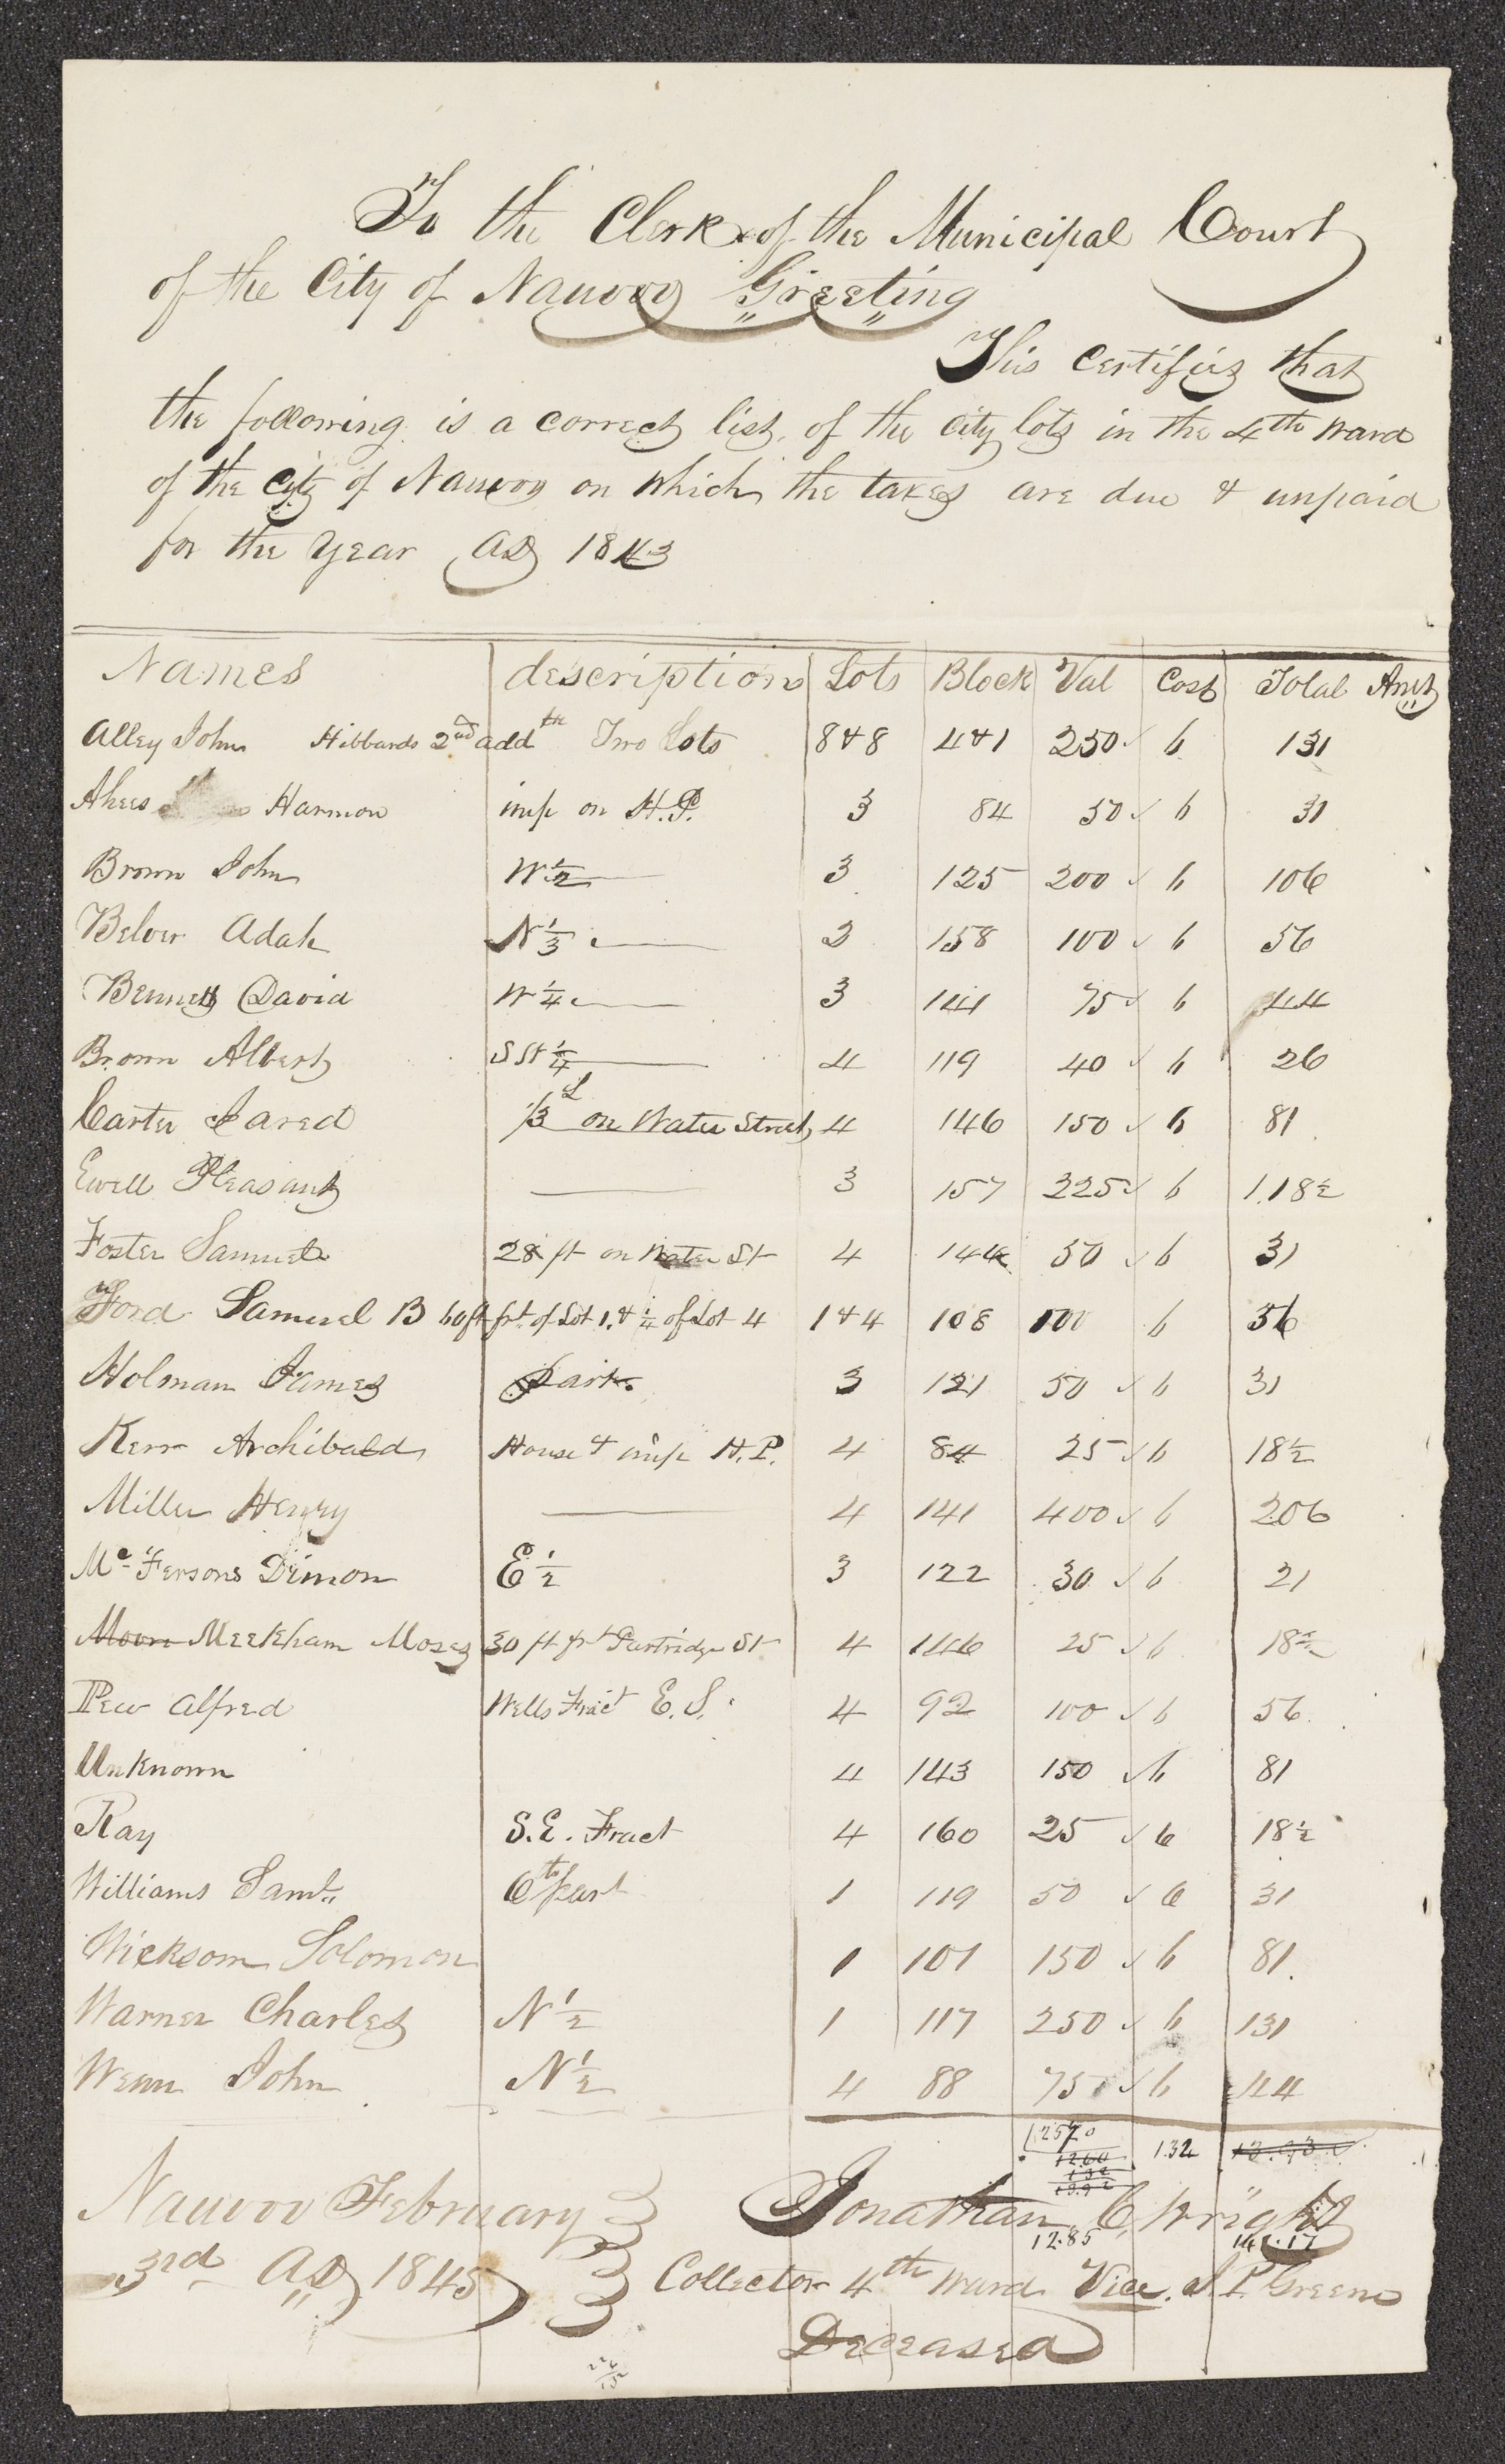 To the Clerk of the Municipal Court
of the City of Nauvoo Greeting
This Certifies that
the following is a correct list of the city lots in the 4th Ward
of the City of Nauvoo on which the taxes are due & unpaid
for the Year AD 1843
Names description Lots Block Val Cost Total Amt
Alley John Hibbards 2nd addtn Two Lots 8&8 4&1 250 6 131
Ahees Harmon imp on H.P. 3 84 50 6 31
Brown John W ½ 3 125 200 6 106
Belver Adah N ⅓ 3 158 100 6 56
Bennett David W ¼ 3 141 75 6 44
Brown Albert S W ¼ 4 119 40 6 26
Carter Jared 1/3d on Water Street 4 146 150 6 81
Ewell Pleasant 3 157 225 6 1.18½
Foster Samuel 28 ft on Water St 4 144 50 6 31
Ford Samuel B 60 ft frt of Lot 1. & ¼ of Lot 4 1&4 108 100 6 56
Holman James Part. 3 121 50 6 31
Kerr Archibald House & imp H.P. 4 84 25 6 18½
Miller Henry 4 141 400 6 206
Mc Fersons Dimon E ½ 3 122 30 6 21
Moore Meekham Moses 30 ft frt Partridge St 4 146 25 6 18½
Pew Alfred Wells Fract E. S. 4 92 100 6 56
Unknown 4 143 150 6 81
Ray S.E. Fract 4 160 25 6 18½
Williams Saml. 6th part 1 119 50 6 31
Wicksom Solomon 1 101 150 6 81
Warner Charles N ½ 1 117 250 6 131
Wenn John N ½ 4 88 75 6 44
2570 132 13.93
1260
132
Nauvoo February Jonathan C. Wright
12.85 14.17
3rd AD 1845 Collector 4th Ward Vice. J. P. Greene
Deceased